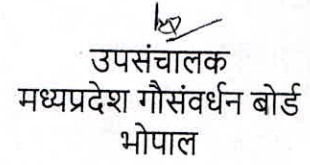 उपसंचालक
मध्यप्रदेश गौसंवर्धन बोर्ड
भोपाल